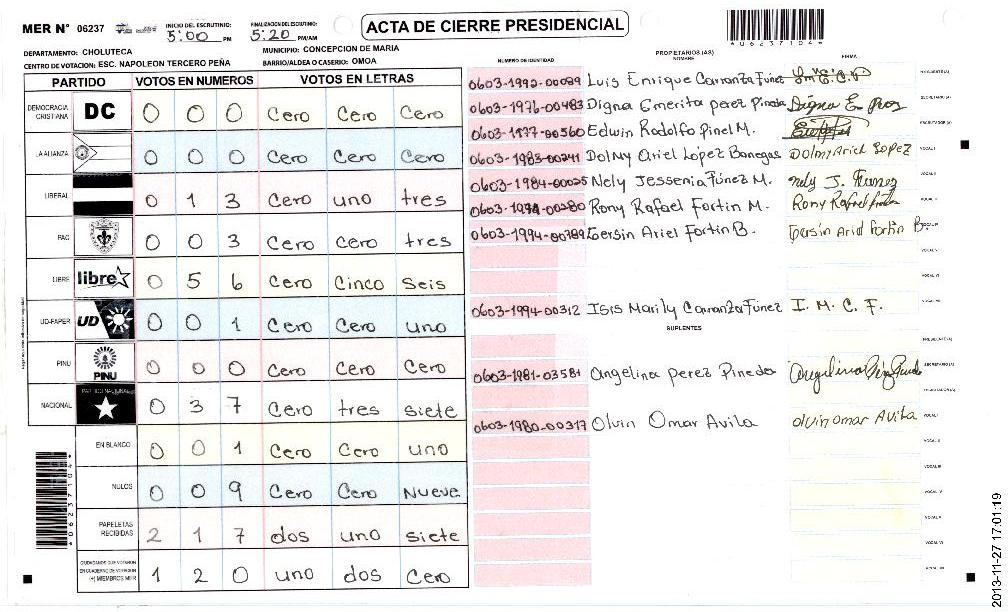 MER N° 06237
INICIO DEL ESCRUTINIO: 5:00 PM
FINALIZACION DEL ESCRUTINIO: 5:20 PM/AM
ACTA DE CIERRE PRESIDENCIAL
*06237104*
DEPARTAMENTO: CHOLUTECA
MUNICIPIO: CONCEPCION DE MARIA
CENTRO DE VOTACION: ESC. NAPOLEON TERCERO PEÑA
BARRIO/ALDEA O CASERIO: OMOA
PARTIDO VOTOS EN NUMEROS VOTOS EN LETRAS
DEMOCRACIA CRISTIANA DC 0 0 0 Cero Cero Cero
LA ALIANZA 0 0 0 Cero Cero Cero
LIBERAL 0 1 3 Cero uno tres
PAC 0 0 3 Cero Cero tres
LIBRE libre 0 5 6 Cero Cinco Seis
UD-FAPER UD 0 0 1 Cero Cero uno
PINU PINU 0 0 0 Cero Cero Cero
NACIONAL PARTIDO NACIONAL 0 3 7 Cero tres siete
EN BLANCO 0 0 1 Cero Cero uno
NULOS 0 0 9 Cero Cero Nueve
PAPELETAS RECIBIDAS 2 1 7 dos uno siete
CIUDADANOS QUE VOTARON EN CUADERNO DE VOTACION (+) MIEMBROS MER 1 2 0 uno dos Cero
NUMERO DE IDENTIDAD PROPIETARIOS (AS) NOMBRE FIRMA
0603-1992-00089 Luis Enrique Carranza Funez PRESIDENTE(A)
0603-1976-00483 Digna Emerita perez Pineda Digna E. SECRETARIO (A)
0603-1977-00560 Edwin Rodolfo Pinel M. ESCRUTADOR (A)
0603-1983-00241 Dolmy Ariel López Banegas Dolmy Ariel Lopez VOCAL I
0603-1984-00025 Nely Jessenia Fúnez M. nely J. Funez VOCAL II
0603-1994-00280 Rony Rafael Fortin M. Rony Rafael
0603-1994-00789 Gersin Ariel Fortin B. Gersin Ariel Fortin B. VOCAL IV
VOCAL V
VOCAL VI
0603-1994-00312 Isis Marily Carranza Funez I. M. C. F.
SUPLENTES
PRESIDENTE(A)
0603-1981-03581 Angelina perez Pineda SECRETARIO (A)
ESCRUTADOR (A)
0603-1980-00317 Olvin Omar Avila Olvin Omar Avila VOCAL I
VOCAL II
VOCAL III
VOCAL IV
VOCAL V
VOCAL VI
*06237104*
2013-11-27 17:01:19